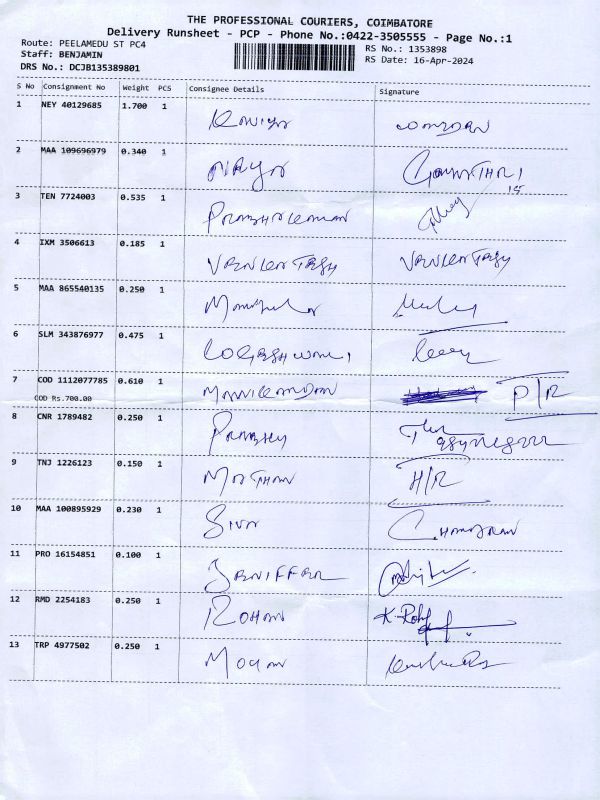 THE PROFESSIONAL COURIERS, COIMBATORE
Delivery Runsheet - PCP - Phone No.:0422-3505555 - Page No.:1
Route: PEELAMEDU ST PC4
Staff: BENJAMIN
DRS No.: DCJB135389801
RS No.: 1353898
RS Date: 16-Apr-2024
S No Consignment No Weight PCS Consignee Details Signature
1 NEY 40129685 1.700 1
2 MAA 109696979 0.340 1
3 TEN 7724003 0.535 1 PRABHAKARAN
4 IXM 3506613 0.185 1 VENKATESH VENKATESH
5 MAA 865540135 0.250 1
6 SLM 343876977 0.475 1 LOGESHWARI
7 COD 1112077785 0.610 1 MANIKANDAN P/R
COD Rs.700.00
8 CNR 1789482 0.250 1 PRABHU
9 TNJ 1226123 0.150 1 H/R
10 MAA 100895929 0.230 1 SIVA CHANDRAN
11 PRO 16154851 0.100 1 JENIFFER
12 RMD 2254183 0.250 1 ROHAN
13 TRP 4977502 0.250 1 MOGAN